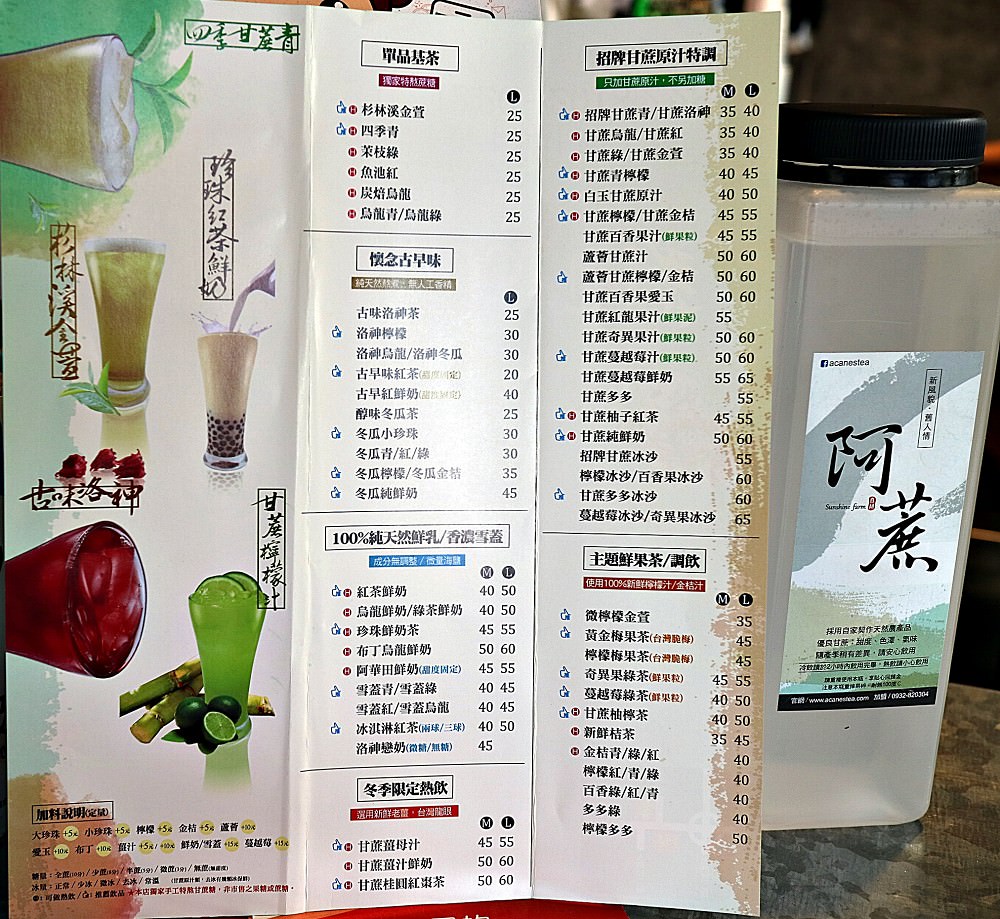 四季甘蔗青
珍珠紅茶鮮奶
杉林溪金萱
古味洛神
甘蔗檸檬汁
加料說明(定量)
大珍珠+5元 小珍珠+5元 檸檬+5元 金桔+5元 蘆薈+10元
愛玉+10元 布丁+10元 薑汁+5元/+10元 鮮奶/雪蓋+15元 蔓越莓+15元
冰量：正常/少冰/微冰/去冰/常溫
H：可做熱飲/推薦飲品 ★本店獨家手工特熬甘蔗糖，非市售之果糖或蔗糖。
單品基茶
獨家特熬蔗糖
L
H 杉林溪金萱 25
H 四季青 25
H 茉枝綠 25
H 魚池紅 25
H 炭焙烏龍 25
H 烏龍青/烏龍綠 25
懷念古早味
純天然熬煮，無人工香精
L
古味洛神茶 25
洛神檸檬 30
洛神烏龍/洛神冬瓜 30
古早味紅茶(甜度固定) 20
古早紅鮮奶(甜度固定) 40
醇味冬瓜茶 25
冬瓜小珍珠 30
冬瓜青/紅/綠 30
冬瓜檸檬/冬瓜金桔 35
冬瓜純鮮奶 45
100%純天然鮮乳/香濃雪蓋
成分無調整/微量海鹽
M L
H 紅茶鮮奶 40 50
H 烏龍鮮奶/綠茶鮮奶 40 50
H 珍珠鮮奶茶 45 55
H 布丁烏龍鮮奶 50 60
H 阿華田鮮奶(甜度固定) 45 55
雪蓋青/雪蓋綠 40 45
雪蓋紅/雪蓋烏龍 40 45
冰淇淋紅茶(兩球/三球) 40 50
洛神戀奶(微糖/無糖) 45
冬季限定熱飲
選用新鮮老薑，台灣龍眼
M L
H 甘蔗薑母汁 45 55
H 甘蔗薑汁鮮奶 50 60
H 甘蔗桂圓紅棗茶 50 60
招牌甘蔗原汁特調
只加甘蔗原汁，不另加糖
M L
H 招牌甘蔗青/甘蔗洛神 35 40
H 甘蔗烏龍/甘蔗紅 35 40
H 甘蔗綠/甘蔗金萱 35 40
H 甘蔗青檸檬 40 45
H 白玉甘蔗原汁 40 50
H 甘蔗檸檬/甘蔗金桔 45 55
甘蔗百香果汁(鮮果粒) 45 55
蘆薈甘蔗汁 50 60
蘆薈甘蔗檸檬/金桔 50 60
甘蔗百香果愛玉 50 60
甘蔗紅龍果汁(鮮果泥) 55
甘蔗奇異果汁(鮮果粒) 50 60
甘蔗蔓越莓汁(鮮果粒) 50 60
甘蔗蔓越莓鮮奶 55 65
甘蔗多多 55
H 甘蔗柚子紅茶 45 55
H 甘蔗純鮮奶 50 60
招牌甘蔗冰沙 55
檸檬冰沙/百香果冰沙 60
甘蔗多多冰沙 60
蔓越莓冰沙/奇異果冰沙 65
主題鮮果茶/調飲
使用100%新鮮檸檬汁/金桔汁
M L
微檸檬金萱 35
黃金梅果茶(台灣脆梅) 45
檸檬梅果茶(台灣脆梅) 45
奇異果綠茶(鮮果粒) 45 55
蔓越莓綠茶(鮮果粒) 40 50
H 甘蔗柚檸茶 40 50
H 新鮮桔茶 35 45
H 金桔青/綠/紅 40
檸檬紅/青/綠 40
百香綠/紅/青 40
多多綠 40
檸檬多多 50
acanestea
新風貌．舊人情
阿蔗
Sunshine farm
採用自家契作天然農產品
優良甘蔗：甜度、色澤、氣味
隨產季稍有差異，請安心飲用
冷飲請於2小時內飲用完畢，熱飲請小心飲用
官網/www.acanestea.com 加盟/0932-820304